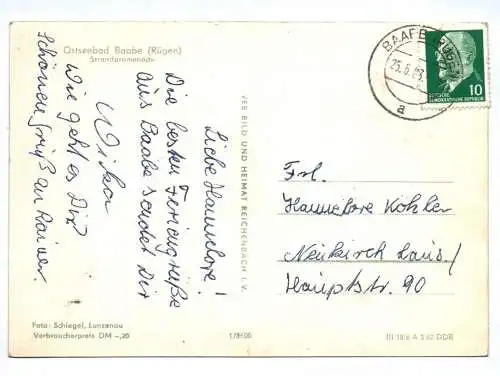 Ostseebad Baabe (Rügen)
Strandpromenade
Liebe Hannelore!
Die besten Feriengrüße
aus Baabe sendet Dir
Wie geht es Dir?
Schönen Gruß an Rainer.
Foto: Schlegel, Lunzenau
Verbraucherpreis DM -,20
VEB BILD UND HEIMAT REICHENBACH I. V.
BAABE
25.6.63
a
10
DEUTSCHE
DEMOKRATISCHE REPUBLIK
Frl.
Hannelore Kohler
Neukirch Laus./
Hauptstr. 90